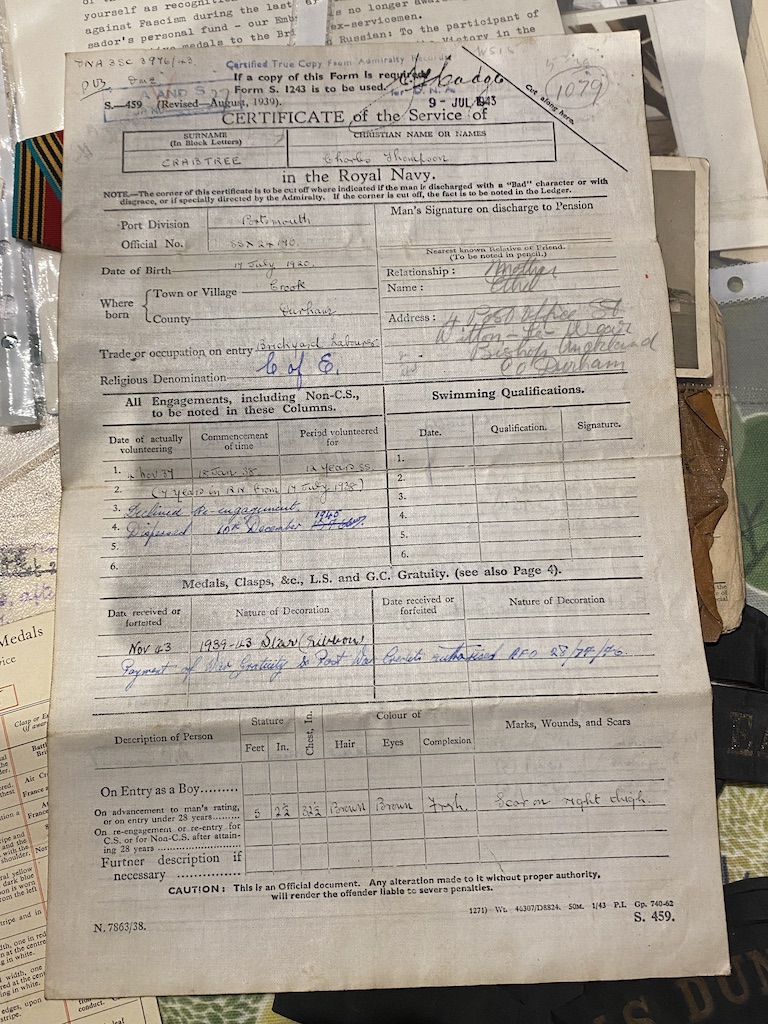 yourself as recognit
against Fascism during the last
is no longer awar
sador's personal fund - our Emb
ex-servicemen.
medals to the Bri
Russian: To the participant of
ictory in the
DNA 3SC 3976/43
Certified True Copy From Admiralty Records
If a copy of this Form is required
Form S. 1243 is to be used.
for D.N.A.
9 - JUL 1943
1079
Cut along here.
S.—459 (Revised—August, 1939).
CERTIFICATE of the Service of
SURNAME
(In Block Letters)
CHRISTIAN NAME OR NAMES
CRABTREE
Charles Thompson
in the Royal Navy.
NOTE.—The corner of this certificate is to be cut off where indicated if the man is discharged with a "Bad" character or with
disgrace, or if specially directed by the Admiralty. If the corner is cut off, the fact is to be noted in the Ledger.
Port Division
Portsmouth
Man's Signature on discharge to Pension
Official No.
Nearest known Relative or Friend.
(To be noted in pencil.)
Date of Birth
17 July 1920.
Relationship : Mother
Name : Ethel
Where born
Town or Village
Crook
County
Durham
Address : Post Office St
Witton-le-Wear
Bishop Auckland
Co Durham
Trade or occupation on entry
Brickyard Labourer
Religious Denomination
C of E.
All Engagements, including Non-C.S.,
to be noted in these Columns.
Swimming Qualifications.
Date of actually volunteering
Commencement of time
Period volunteered for
Date.
Qualification.
Signature.
1. 2 Nov 37 18 Jan 38 12 years SS
2. (7 years in RN from 17 July 1938)
3. Declined Re-engagement.
4. Dispersed 10th December 1945
5.
6.
1.
2.
3.
4.
5.
6.
Medals, Clasps, &c., L.S. and G.C. Gratuity. (see also Page 4).
Date received or forfeited
Nature of Decoration
Date received or forfeited
Nature of Decoration
Nov 43 1939-43 Star (Ribbon)
Payment of War Gratuity & Post War Credits authorised
Description of Person
Stature
Feet
In.
Chest, In.
Colour of
Hair
Eyes
Complexion
Marks, Wounds, and Scars
On Entry as a Boy.........
On advancement to man's rating,
or on entry under 28 years.........
5 2½ 32½ Brown Brown Frsh. Scar on right thigh.
On re-engagement or re-entry for
C.S. or for Non-C.S. after attain-
ing 28 years
Further description if
necessary
CAUTION: This is an Official document. Any alteration made to it without proper authority,
will render the offender liable to severe penalties.
N. 7863/38.
1271) Wt. 46307/D8824. 50M. 1/43 P.I. Gp. 740-62
S. 459.
Medals